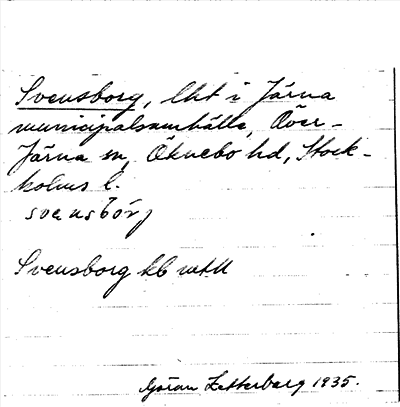 Svensborg, lht i Järna
municipalsamhälle, Över-
Järna sn, Öknebo hd, Stock-
holms l.
svensbórj
Svensborg kb
Göran Zetterberg 1935.